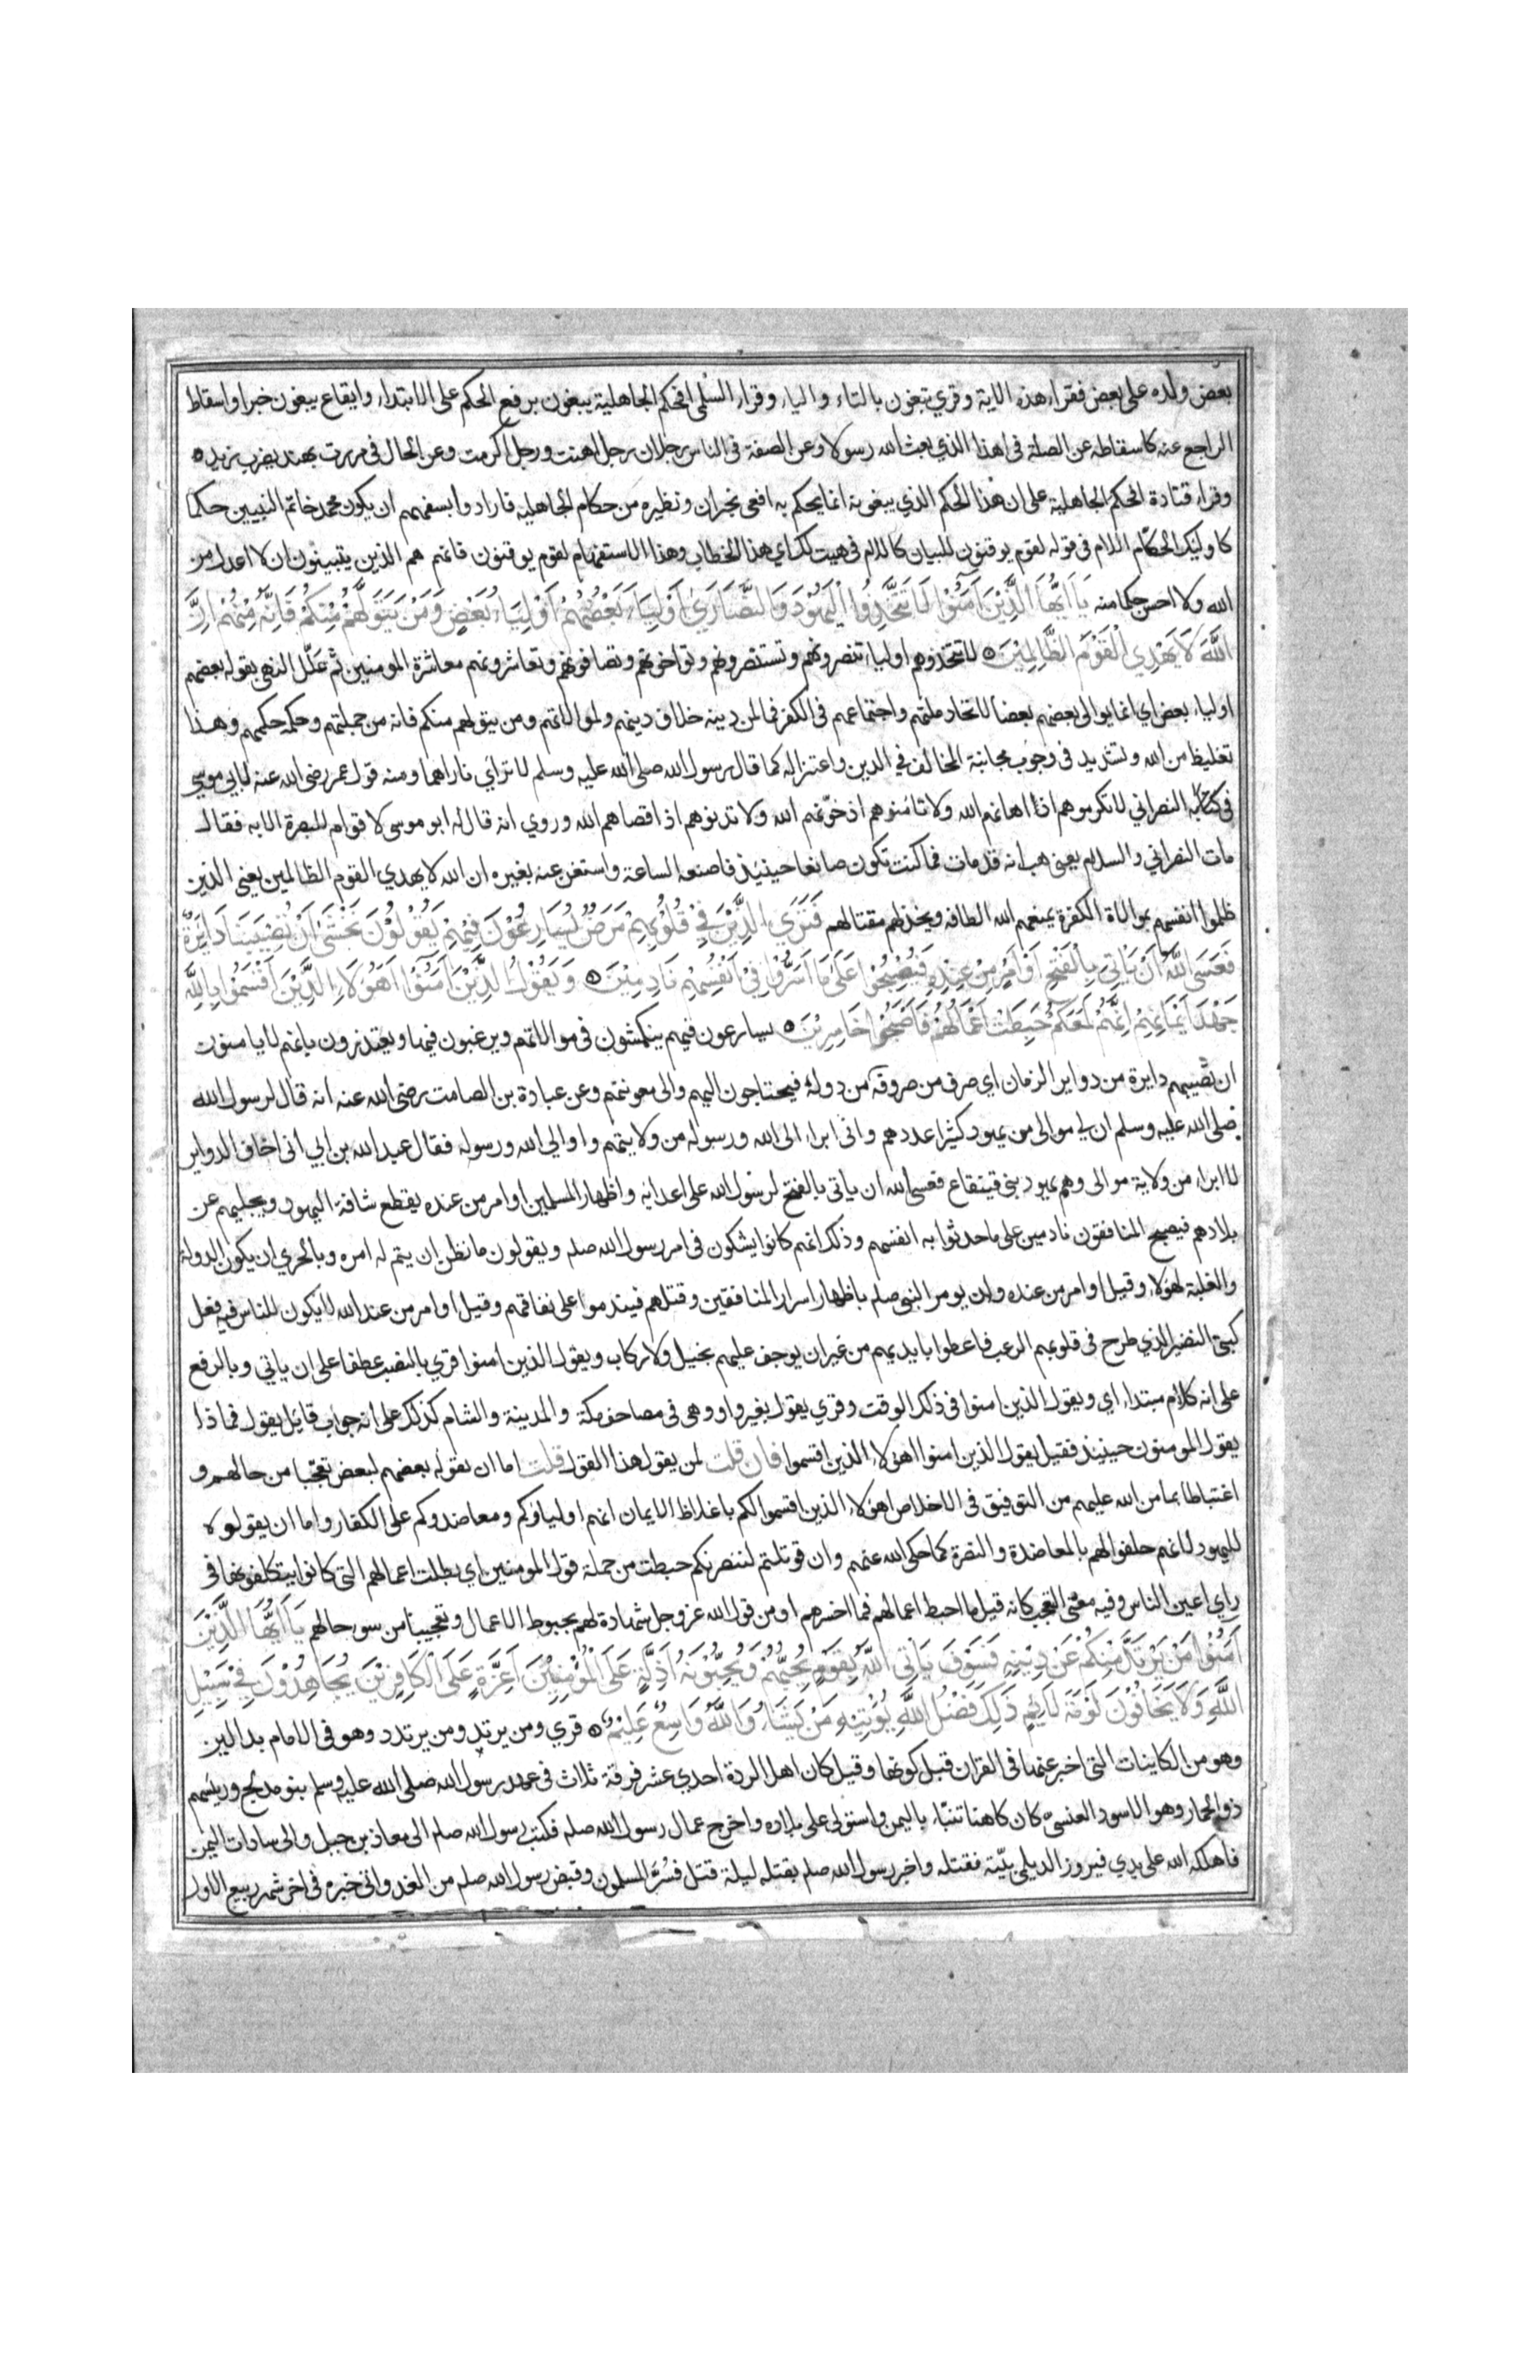 بعض ولده على بعض فقراء هذه الاية وقري تبغون بالتاء والياء وقراء السلمى افحكم الجاهلية يبغون برفع الحكم على الابتداء وايقاع يبغون خبرا واسقاط
الراجع عنه كاسقاطه عن الصلة فى اهذا الذي بعث الله رسولا وعن الصفة فى الناس رجلان رجل اهنت ورجل اكرمت وعن الحال فى مررت بهند يضرب زيد ه
وقراء قتادة افحكم الجاهلية على ان هذا الحكم الذي يبغونه انما يحكم به افعى نجران ونظيره من حكام الجاهلية فارادوا بسفههم ان يكون محمد خاتم النبيين حكما
كاوليك الحكام اللام فى قوله لقوم يوقنون للبيان كاللام فى هيت لك اي هذا الخطاب وهذا الاستفهام لقوم يوقنون فانهم هم الذين يتبينون ان لا اعدل من
الله ولا احسن حكما منه يَا اَيُّهَا الَّذِيْنَ اٰمَنُوْا لَا تَتَّخِذُوا الْيَهُوْدَ وَالنَّصَارَيٰ اَوْلِيَاءَ بَعْضُهُمْ اَوْلِيَاءُ بَعْضٍ وَمَنْ يَتَوَلَّهُمْ مِنْكُمْ فَاِنَّهُ مِنْهُمْ اِنَّ
اللّٰهَ لَا يَهْدِي الْقَوْمَ الظَّالِمِيْنَ ه لا تتخذوهم اولياء تنصرونهم وتستنصرونهم وتواخونهم وتصافونهم وتعاشرونهم معاشرة المومنين ثم علّل النهى بقوله بعضهم
اولياء بعض اي انما يوالى بعضهم بعضا لاتحاد ملتهم واجتماعهم فى الكفر فما لمن دينه خلاف دينهم ولموالاتهم ومن يتولهم منكم فانه من جملتهم وحكمه حكمهم وهذا
تغليظ من الله وتشديد فى وجوب مجانبة المخالف في الدين واعتزاله كما قال رسول الله صلى الله عليه وسلم لا تراي ناراهما ومنه قول عمر رضى الله عنه لابي موسي
فى كتابه النصراني لا تكرموهم اذا اهانهم الله ولا تامنوهم اذ خوّنهم الله ولا تدنوهم اذ اقصاهم الله وروي انه قال له ابو موسى لا قوام للبصرة الا به فقال
مات النصراني والسلام يعنى هب انه قد مات فما كنت تكون صانعا حينيذ فاصنعه الساعة واستغن عنه بغيره ان الله لا يهدي القوم الظالمين يعنى الذين
ظلموا انفسهم بموالاة الكفرة يمنعهم الله الطافه ويخذلهم مقتا لهم فَتَرَي الَّذِيْنَ فِيْ قُلُوْبِهِمْ مَرَضٌ يُسَارِعُوْنَ فِيْهِمْ يَقُوْلُوْنَ نَخْشَىٰ اَنْ تُصِيْبَنَا دَايِرَةٌ
فَعَسَى اللّٰهُ اَنْ يَاْتِىَ بِالْفَتْحِ اَوْ اَمْرٍ مِنْ عِنْدِهِ فَيُصْبِحُوْا عَلَىٰ مَا اَسَرُّوْا فِيْ اَنْفُسِهِمْ نَادِمِيْنَ ه وَيَقُوْلُ الَّذِيْنَ اٰمَنُوْا اَهٰؤُلَاءِ الَّذِيْنَ اَقْسَمُوْا بِاللّٰهِ
جَهْدَ اَيْمَانِهِمْ اِنَّهُمْ لَمَعَكُمْ حَبِطَتْ اَعْمَالُهُمْ فَاَصْبَحُوْا خَاسِرِيْنَ ه يسارعون فيهم ينكمشون فى موالاتهم ويرغبون فيها ويعتذرون بانهم لا يامنون
ان تصيبهم دايرة من دواير الزمان اي صرف من صروفه من دوله فيحتاجون اليهم والى معونتهم وعن عبادة بن الصامت رضى الله عنه انه قال لرسول الله
صلى الله عليه وسلم ان لي موالى من يهود كثيرا عددهم وانى ابراء الى الله ورسوله من ولايتهم واوالي الله ورسوله فقال عبد الله بن ابي انى اخاف الدواير
لا ابراء من ولاية موالى وهم يهود بنى قينقاع فعسى الله ان ياتى بالفتح لرسول الله على اعدايه واظهار المسلمين او امر من عنده يقطع شافة اليهود ويجليهم عن
بلادهم فيصبح المنافقون نادمين على ما حدثوا به انفسهم وذلك انهم كانوا يشكون فى امر رسول الله صلم ويقولون ما نظن ان يتم له امره وبالحري ان يكون الدولة
والغلبة لهولاء وقيل او امر من عنده وان يومر النبى صلم باظهار اسرار المنافقين وقتلهم فيندموا على نفاقهم وقيل او امر من عند الله لا يكون للناس فيه فعل
كبنى النضير الذي طرح فى قلوبهم الرعب فاعطوا بايديهم من غير ان يوجف عليهم بخيل ولا ركاب ويقول الذين امنوا قري بالنصب عطفا على ان ياتي وبالرفع
على انه كلام مبتداء اي ويقول الذين امنوا فى ذلك الوقت وقري يقول بغير واو وهى فى مصاحف مكة والمدينة والشام كذلك على انه جواب قايل يقول فماذا
يقول المومنون حينيذ فقيل يقول الذين امنوا اهولاء الذين اقسموا فان قلت لمن يقول هذا القول قلت اما ان يقوله بعضهم لبعض تعجّبا من حالهم و
اغتباطا بما من الله عليهم من التوفيق فى الاخلاص اهولاء الذين اقسموا لكم باغلاظ الايمان انهم اولياؤكم ومعاضدوكم على الكفار واما ان يقولوه
لليهود لانهم حلفوا لهم بالمعاضدة والنصرة كما حكى الله عنهم وان قوتلتم لننصرنكم حبطت من جملة قول المومنين اي بطلت اعمالهم التى كانوا يتكلفونها فى
راي اعين الناس وفيه معنى التعجب كانه قيل ما احبط اعمالهم فما اخسرهم او من قول الله عز وجل شهادة لهم بحبوط الاعمال وتعجيبا من سو حالهم يَا اَيُّهَا الَّذِيْنَ
اٰمَنُوْا مَنْ يَرْتَدَّ مِنْكُمْ عَنْ دِيْنِهِ فَسَوْفَ يَاْتِى اللّٰهُ بِقَوْمٍ يُحِبُّهُمْ وَيُحِبُّوْنَهُ اَذِلَّةٍ عَلَى الْمُؤْمِنِيْنَ اَعِزَّةٍ عَلَى الْكَافِرِيْنَ يُجَاهِدُوْنَ فِيْ سَبِيْلِ
اللّٰهِ وَلَا يَخَافُوْنَ لَوْمَةَ لَايِمٍ ذٰلِكَ فَضْلُ اللّٰهِ يُوْتِيْهِ مَنْ يَشَاءُ وَاللّٰهُ وَاسِعٌ عَلِيْمٌ ه قري ومن يرتد ومن يرتدد وهو فى الامام بدالين
وهو من الكاينات التى اخبر عنها فى القران قبل كونها وقيل كان اهل الردة احدي عشر فرقة ثلاث فى عهد رسول الله صلى الله عليه وسلم بنو مدلج وريسهم
ذو الحمار وهو الاسود العنسى كان كاهنا تنبّاء باليمن واستولى على بلاده واخرج عمال رسول الله صلم فكتب رسول الله صلم الى معاذ بن جبل والى سادات اليمن
فاهلكه الله على يدي فيروز الديلمي بيّته فقتله واخبر رسول الله صلم بقتله ليلة قتل فسُرّ المسلمون وقبض رسول الله صلم من الغد واتى خبره فى اخر شهر ربيع الاول